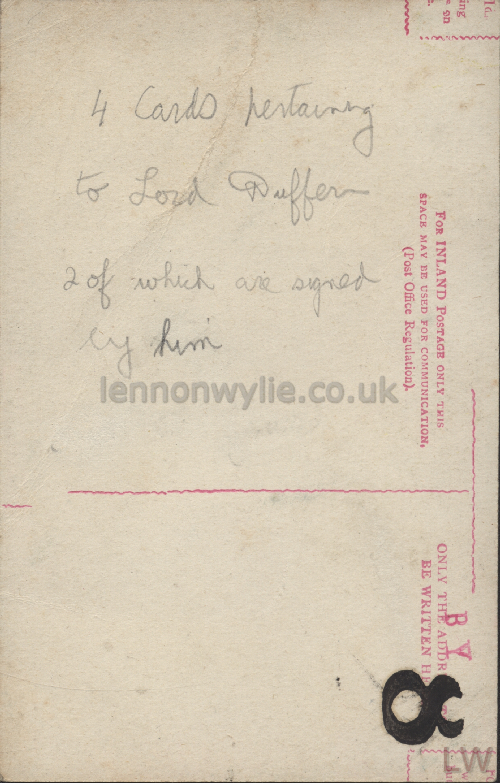 4 Cards pertaining
to Lord Dufferin
2 of which are signed
by him
lennonwylie.co.uk
FOR INLAND POSTAGE ONLY THIS
SPACE MAY BE USED FOR COMMUNICATION,
(Post Office Regulation).
ONLY THE ADDR
BE WRITTEN HE
BY
LW